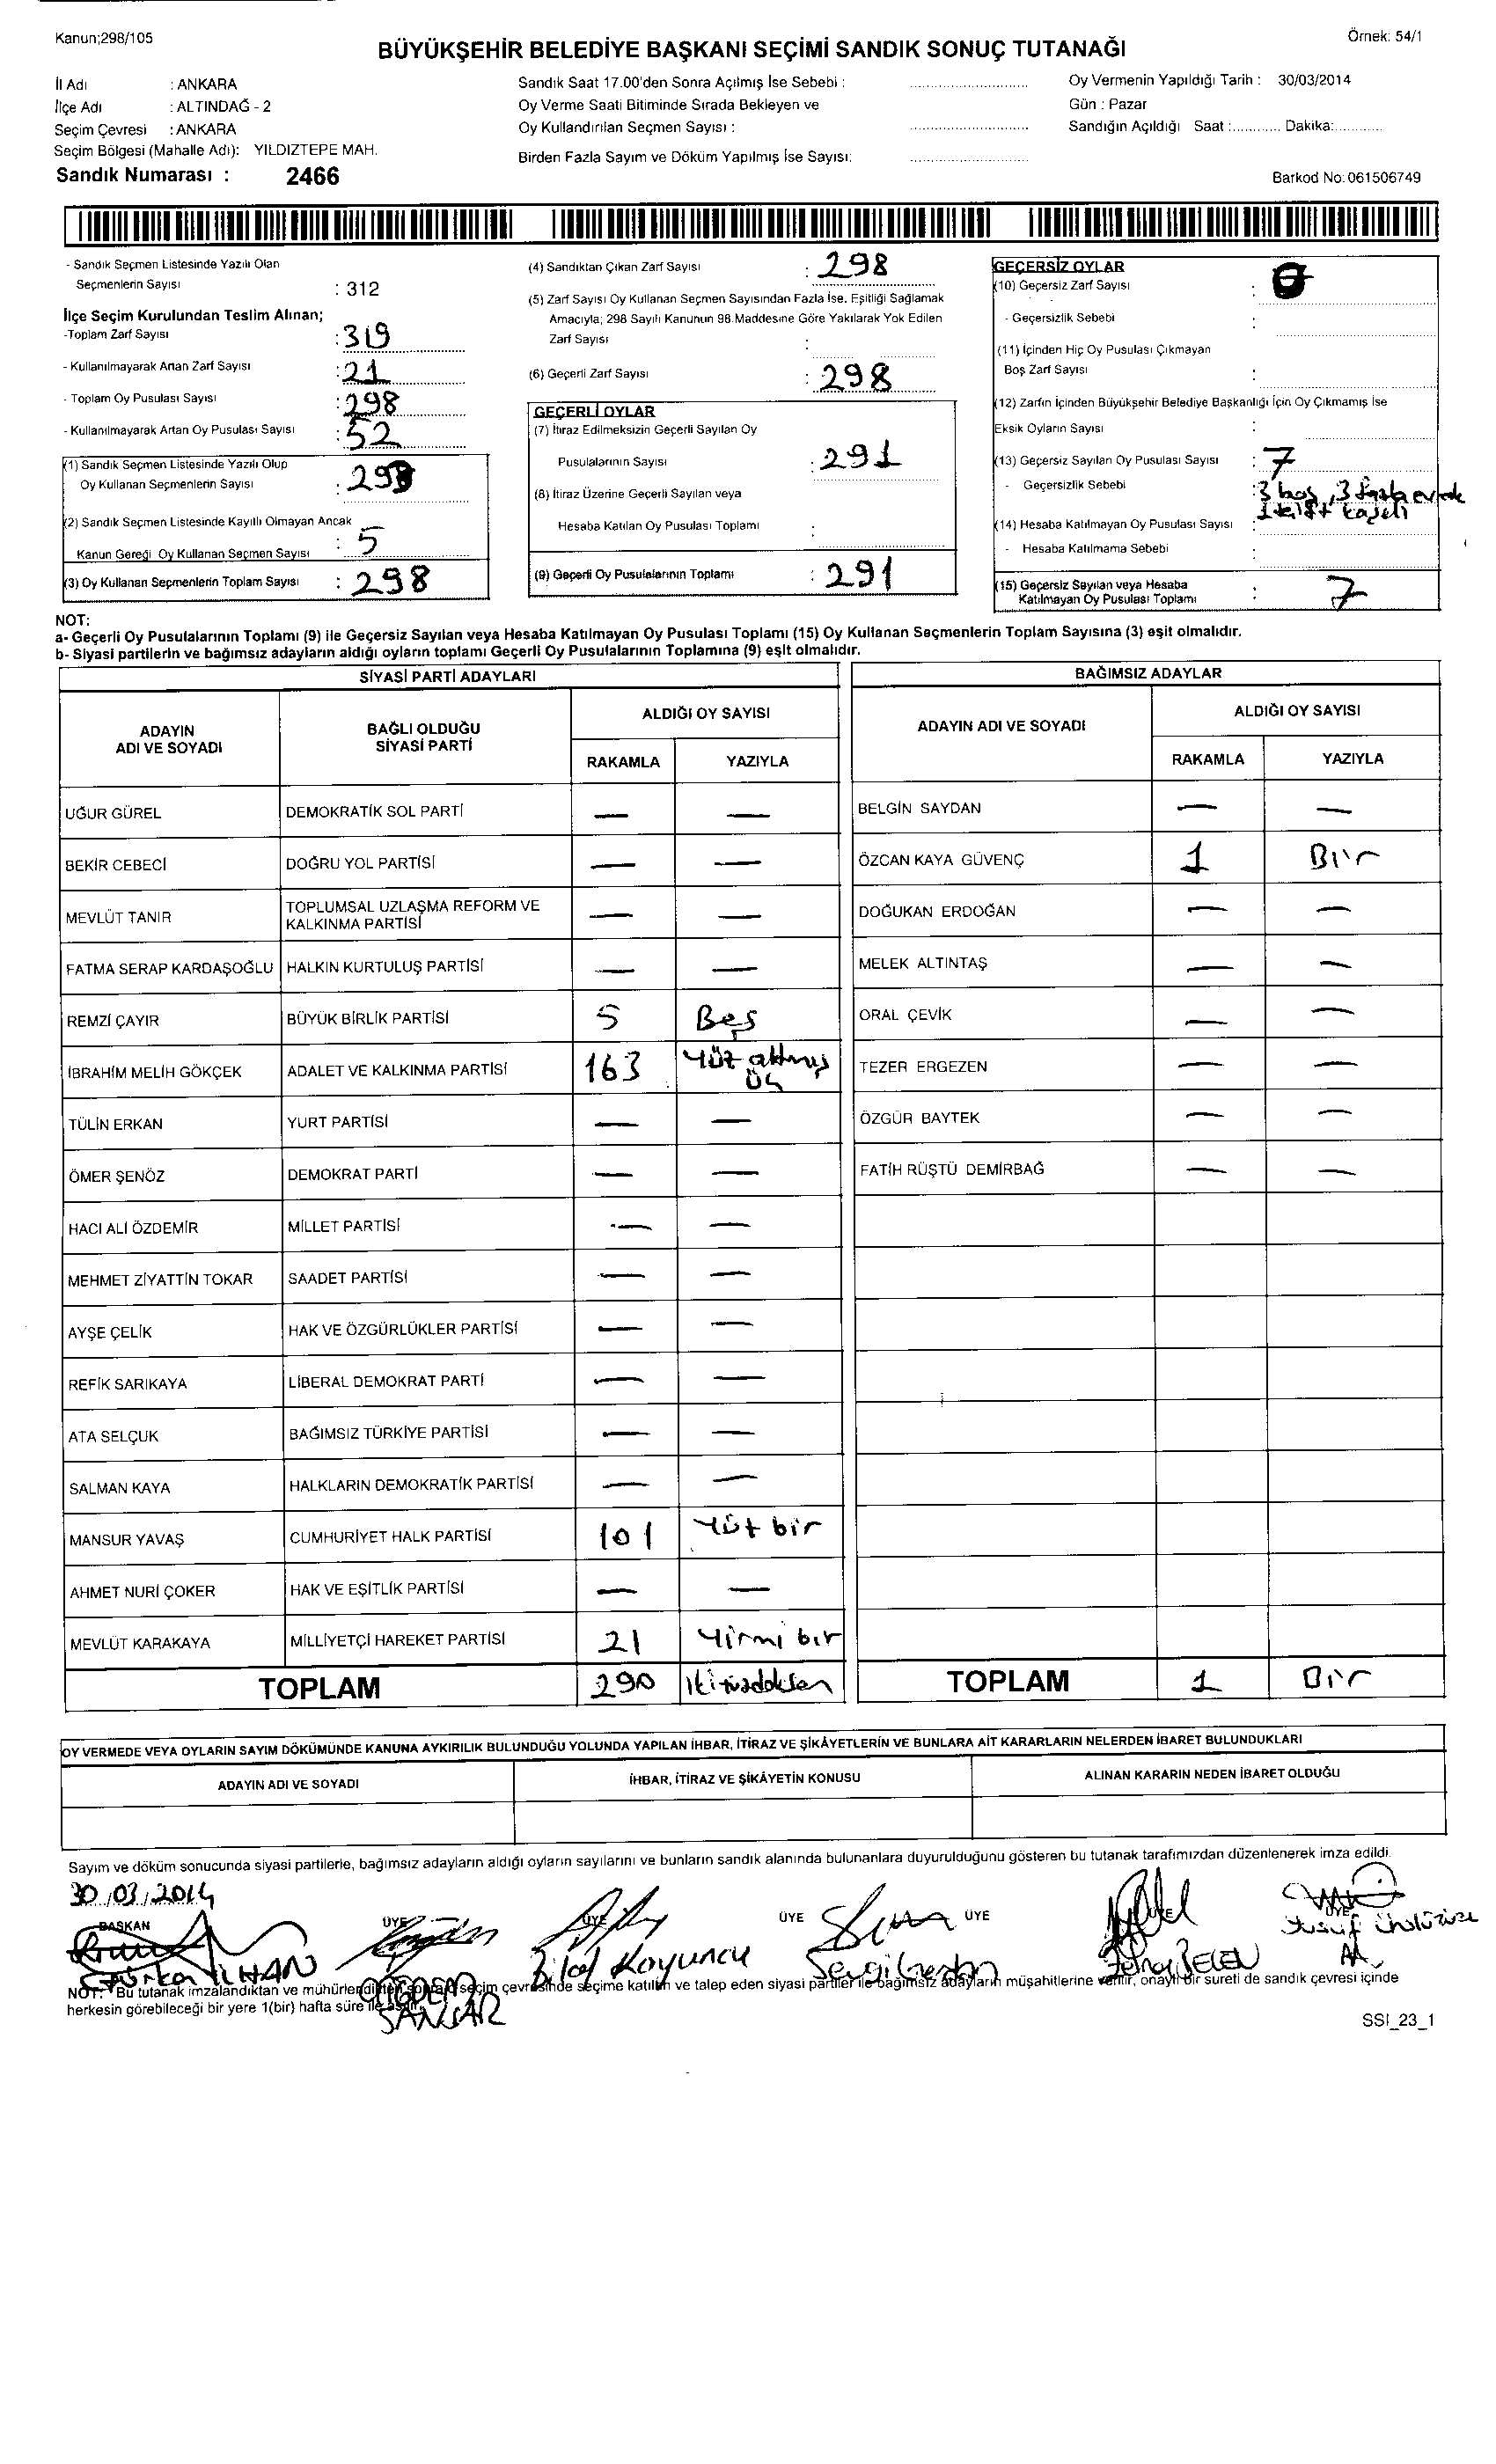 Kanun;298/105
Örnek: 54/1
BÜYÜKŞEHİR BELEDİYE BAŞKANI SEÇİMİ SANDIK SONUÇ TUTANAĞI
İl Adı : ANKARA
İlçe Adı : ALTINDAĞ - 2
Seçim Çevresi : ANKARA
Seçim Bölgesi (Mahalle Adı): YILDIZTEPE MAH.
Sandık Numarası : 2466
Sandık Saat 17.00'den Sonra Açılmış İse Sebebi :
Oy Verme Saati Bitiminde Sırada Bekleyen ve
Oy Kullandırılan Seçmen Sayısı :
Birden Fazla Sayım ve Döküm Yapılmış İse Sayısı:
Oy Vermenin Yapıldığı Tarih : 30/03/2014
Gün : Pazar
Sandığın Açıldığı Saat :............ Dakika:............
Barkod No:061506749
- Sandık Seçmen Listesinde Yazılı Olan
Seçmenlerin Sayısı : 312
İlçe Seçim Kurulundan Teslim Alınan;
-Toplam Zarf Sayısı : 319
- Kullanılmayarak Artan Zarf Sayısı : 21
- Toplam Oy Pusulası Sayısı : 298
- Kullanılmayarak Artan Oy Pusulası Sayısı : 52
(1) Sandık Seçmen Listesinde Yazılı Olup
Oy Kullanan Seçmenlerin Sayısı :
(2) Sandık Seçmen Listesinde Kayıllı Olmayan Ancak
Kanun Gereği Oy Kullanan Seçmen Sayısı : 5
(3) Oy Kullanan Seçmenlerin Toplam Sayısı : 298
(4) Sandıktan Çıkan Zarf Sayısı : 298
(5) Zarf Sayısı Oy Kullanan Seçmen Sayısından Fazla İse. Eşitliği Sağlamak
Amacıyla; 298 Sayılı Kanunun 98.Maddesine Göre Yakılarak Yok Edilen
Zarf Sayısı :
(6) Geçerli Zarf Sayısı : 298
GEÇERLİ OYLAR
(7) İtiraz Edilmeksizin Geçerli Sayılan Oy
Pusulalarının Sayısı : 291
(8) İtiraz Üzerine Geçerli Sayılan veya
Hesaba Katılan Oy Pusulası Toplamı :
(9) Geçerli Oy Pusulalarının Toplamı : 291
GEÇERSİZ OYLAR
(10) Geçersiz Zarf Sayısı : 0
- Geçersizlik Sebebi :
(11) İçinden Hiç Oy Pusulası Çıkmayan
Boş Zarf Sayısı :
(12) Zarfın İçinden Büyükşehir Belediye Başkanlığı İçin Oy Çıkmamış İse
Eksik Oyların Sayısı :
(13) Geçersiz Sayılan Oy Pusulası Sayısı : 7
- Geçersizlik Sebebi : 3 boş, 3 fazla evrak
1 çift kaşeli
(14) Hesaba Katılmayan Oy Pusulası Sayısı :
- Hesaba Katılmama Sebebi :
(15) Geçersiz Sayılan veya Hesaba
Katılmayan Oy Pusulası Toplamı : 7
NOT:
a- Geçerli Oy Pusulalarının Toplamı (9) ile Geçersiz Sayılan veya Hesaba Katılmayan Oy Pusulası Toplamı (15) Oy Kullanan Seçmenlerin Toplam Sayısına (3) eşit olmalıdır.
b- Siyasi partilerin ve bağımsız adayların aldığı oyların toplamı Geçerli Oy Pusulalarının Toplamına (9) eşit olmalıdır.
SİYASİ PARTİ ADAYLARI
ADAYIN ADI VE SOYADI
BAĞLI OLDUĞU SİYASİ PARTİ
ALDIĞI OY SAYISI
RAKAMLA YAZIYLA
UĞUR GÜREL DEMOKRATİK SOL PARTİ — —
BEKİR CEBECİ DOĞRU YOL PARTİSİ — —
MEVLÜT TANIR TOPLUMSAL UZLAŞMA REFORM VE KALKINMA PARTİSİ — —
FATMA SERAP KARDAŞOĞLU HALKIN KURTULUŞ PARTİSİ — —
REMZİ ÇAYIR BÜYÜK BİRLİK PARTİSİ 5 Beş
İBRAHİM MELİH GÖKÇEK ADALET VE KALKINMA PARTİSİ 163 Yüz altmış üç
TÜLİN ERKAN YURT PARTİSİ — —
ÖMER ŞENÖZ DEMOKRAT PARTİ — —
HACI ALİ ÖZDEMİR MİLLET PARTİSİ — —
MEHMET ZİYATTİN TOKAR SAADET PARTİSİ — —
AYŞE ÇELİK HAK VE ÖZGÜRLÜKLER PARTİSİ — —
REFİK SARIKAYA LİBERAL DEMOKRAT PARTİ — —
ATA SELÇUK BAĞIMSIZ TÜRKİYE PARTİSİ — —
SALMAN KAYA HALKLARIN DEMOKRATİK PARTİSİ — —
MANSUR YAVAŞ CUMHURİYET HALK PARTİSİ 101 Yüz bir
AHMET NURİ ÇOKER HAK VE EŞİTLİK PARTİSİ — —
MEVLÜT KARAKAYA MİLLİYETÇİ HAREKET PARTİSİ 21 Yirmi bir
TOPLAM 290 ikiyüzdoksan
BAĞIMSIZ ADAYLAR
ADAYIN ADI VE SOYADI
ALDIĞI OY SAYISI
RAKAMLA YAZIYLA
BELGİN SAYDAN — —
ÖZCAN KAYA GÜVENÇ 1 Bir
DOĞUKAN ERDOĞAN — —
MELEK ALTINTAŞ — —
ORAL ÇEVİK — —
TEZER ERGEZEN — —
ÖZGÜR BAYTEK — —
FATİH RÜŞTÜ DEMİRBAĞ — —
TOPLAM 1 Bir
OY VERMEDE VEYA OYLARIN SAYIM DÖKÜMÜNDE KANUNA AYKIRILIK BULUNDUĞU YOLUNDA YAPILAN İHBAR, İTİRAZ VE ŞİKÂYETLERİN VE BUNLARA AİT KARARLARIN NELERDEN İBARET BULUNDUKLARI
ADAYIN ADI VE SOYADI İHBAR, İTİRAZ VE ŞİKÂYETİN KONUSU ALINAN KARARIN NEDEN İBARET OLDUĞU
Sayım ve döküm sonucunda siyasi partilerle, bağımsız adayların aldığı oyların sayılarını ve bunların sandık alanında bulunanlara duyurulduğunu gösteren bu tutanak tarafımızdan düzenlenerek imza edildi.
30/03/2014
BAŞKAN ÜYE ÜYE ÜYE ÜYE ÜYE
İLHAN Bilal Koyuncu Sevgi Yusuf
NOT: Bu tutanak imzalandıktan ve mühürlendikten sonra seçim çevresinde seçime katılan ve talep eden siyasi partiler ile bağımsız adayların müşahitlerine verilir, onaylı bir sureti de sandık çevresi içinde
herkesin görebileceği bir yere 1(bir) hafta süre ile asılır.
SSI_23_1